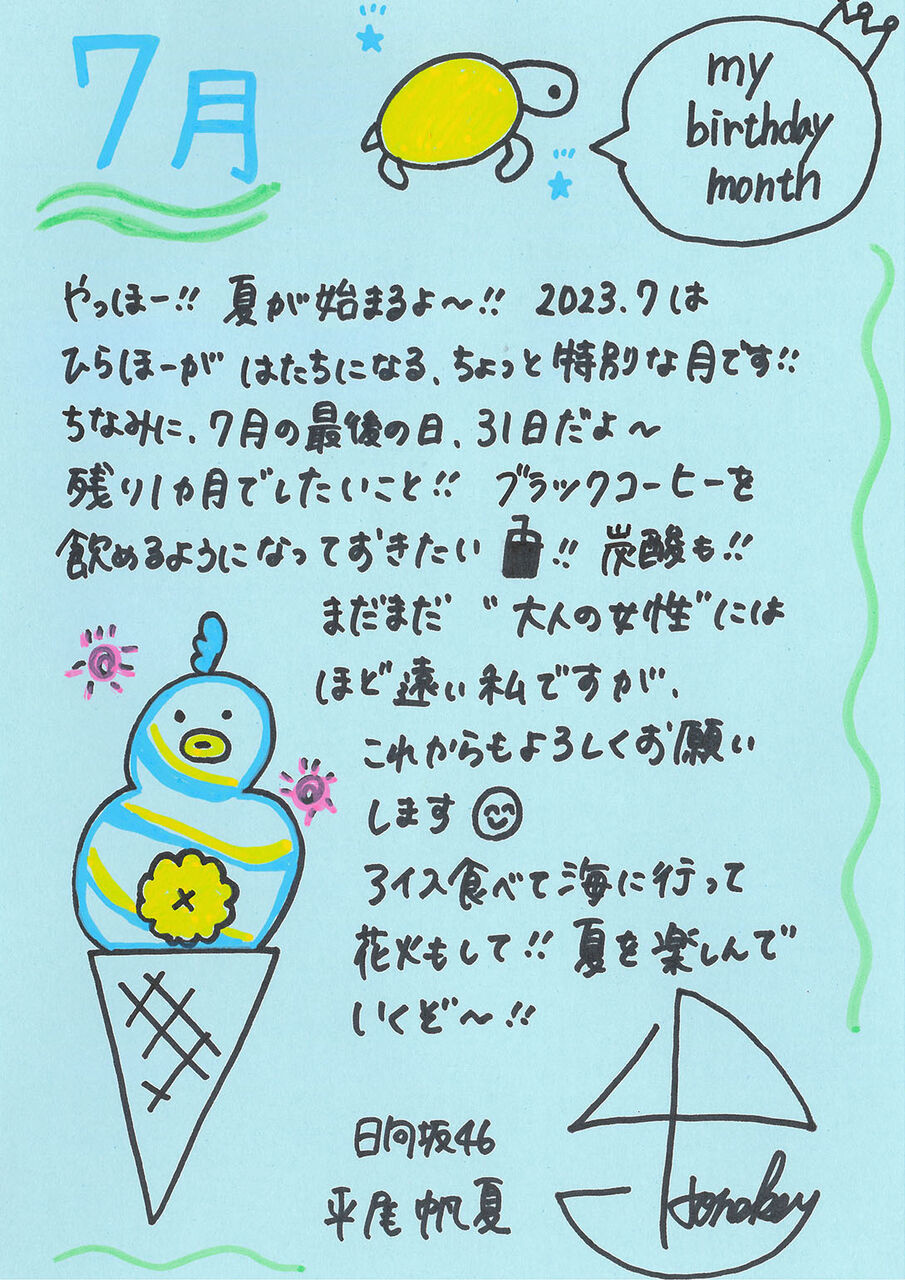 7月
my
birthday
month
やっほー!! 夏が始まるよ〜!! 2023.7は
ひらほーが はたちになる、ちょっと特別な月です!!
ちなみに、7月の最後の日、31日だよ〜
残り1ヵ月でしたいこと!! ブラックコーヒーを
飲めるようになっておきたい!! 炭酸も!!
まだまだ "大人の女性"には
ほど遠い私ですが、
これからもよろしくお願い
します
アイス食べて海に行って
花火もして!! 夏を楽しんで
いくぞ〜!!
日向坂46
平尾帆夏